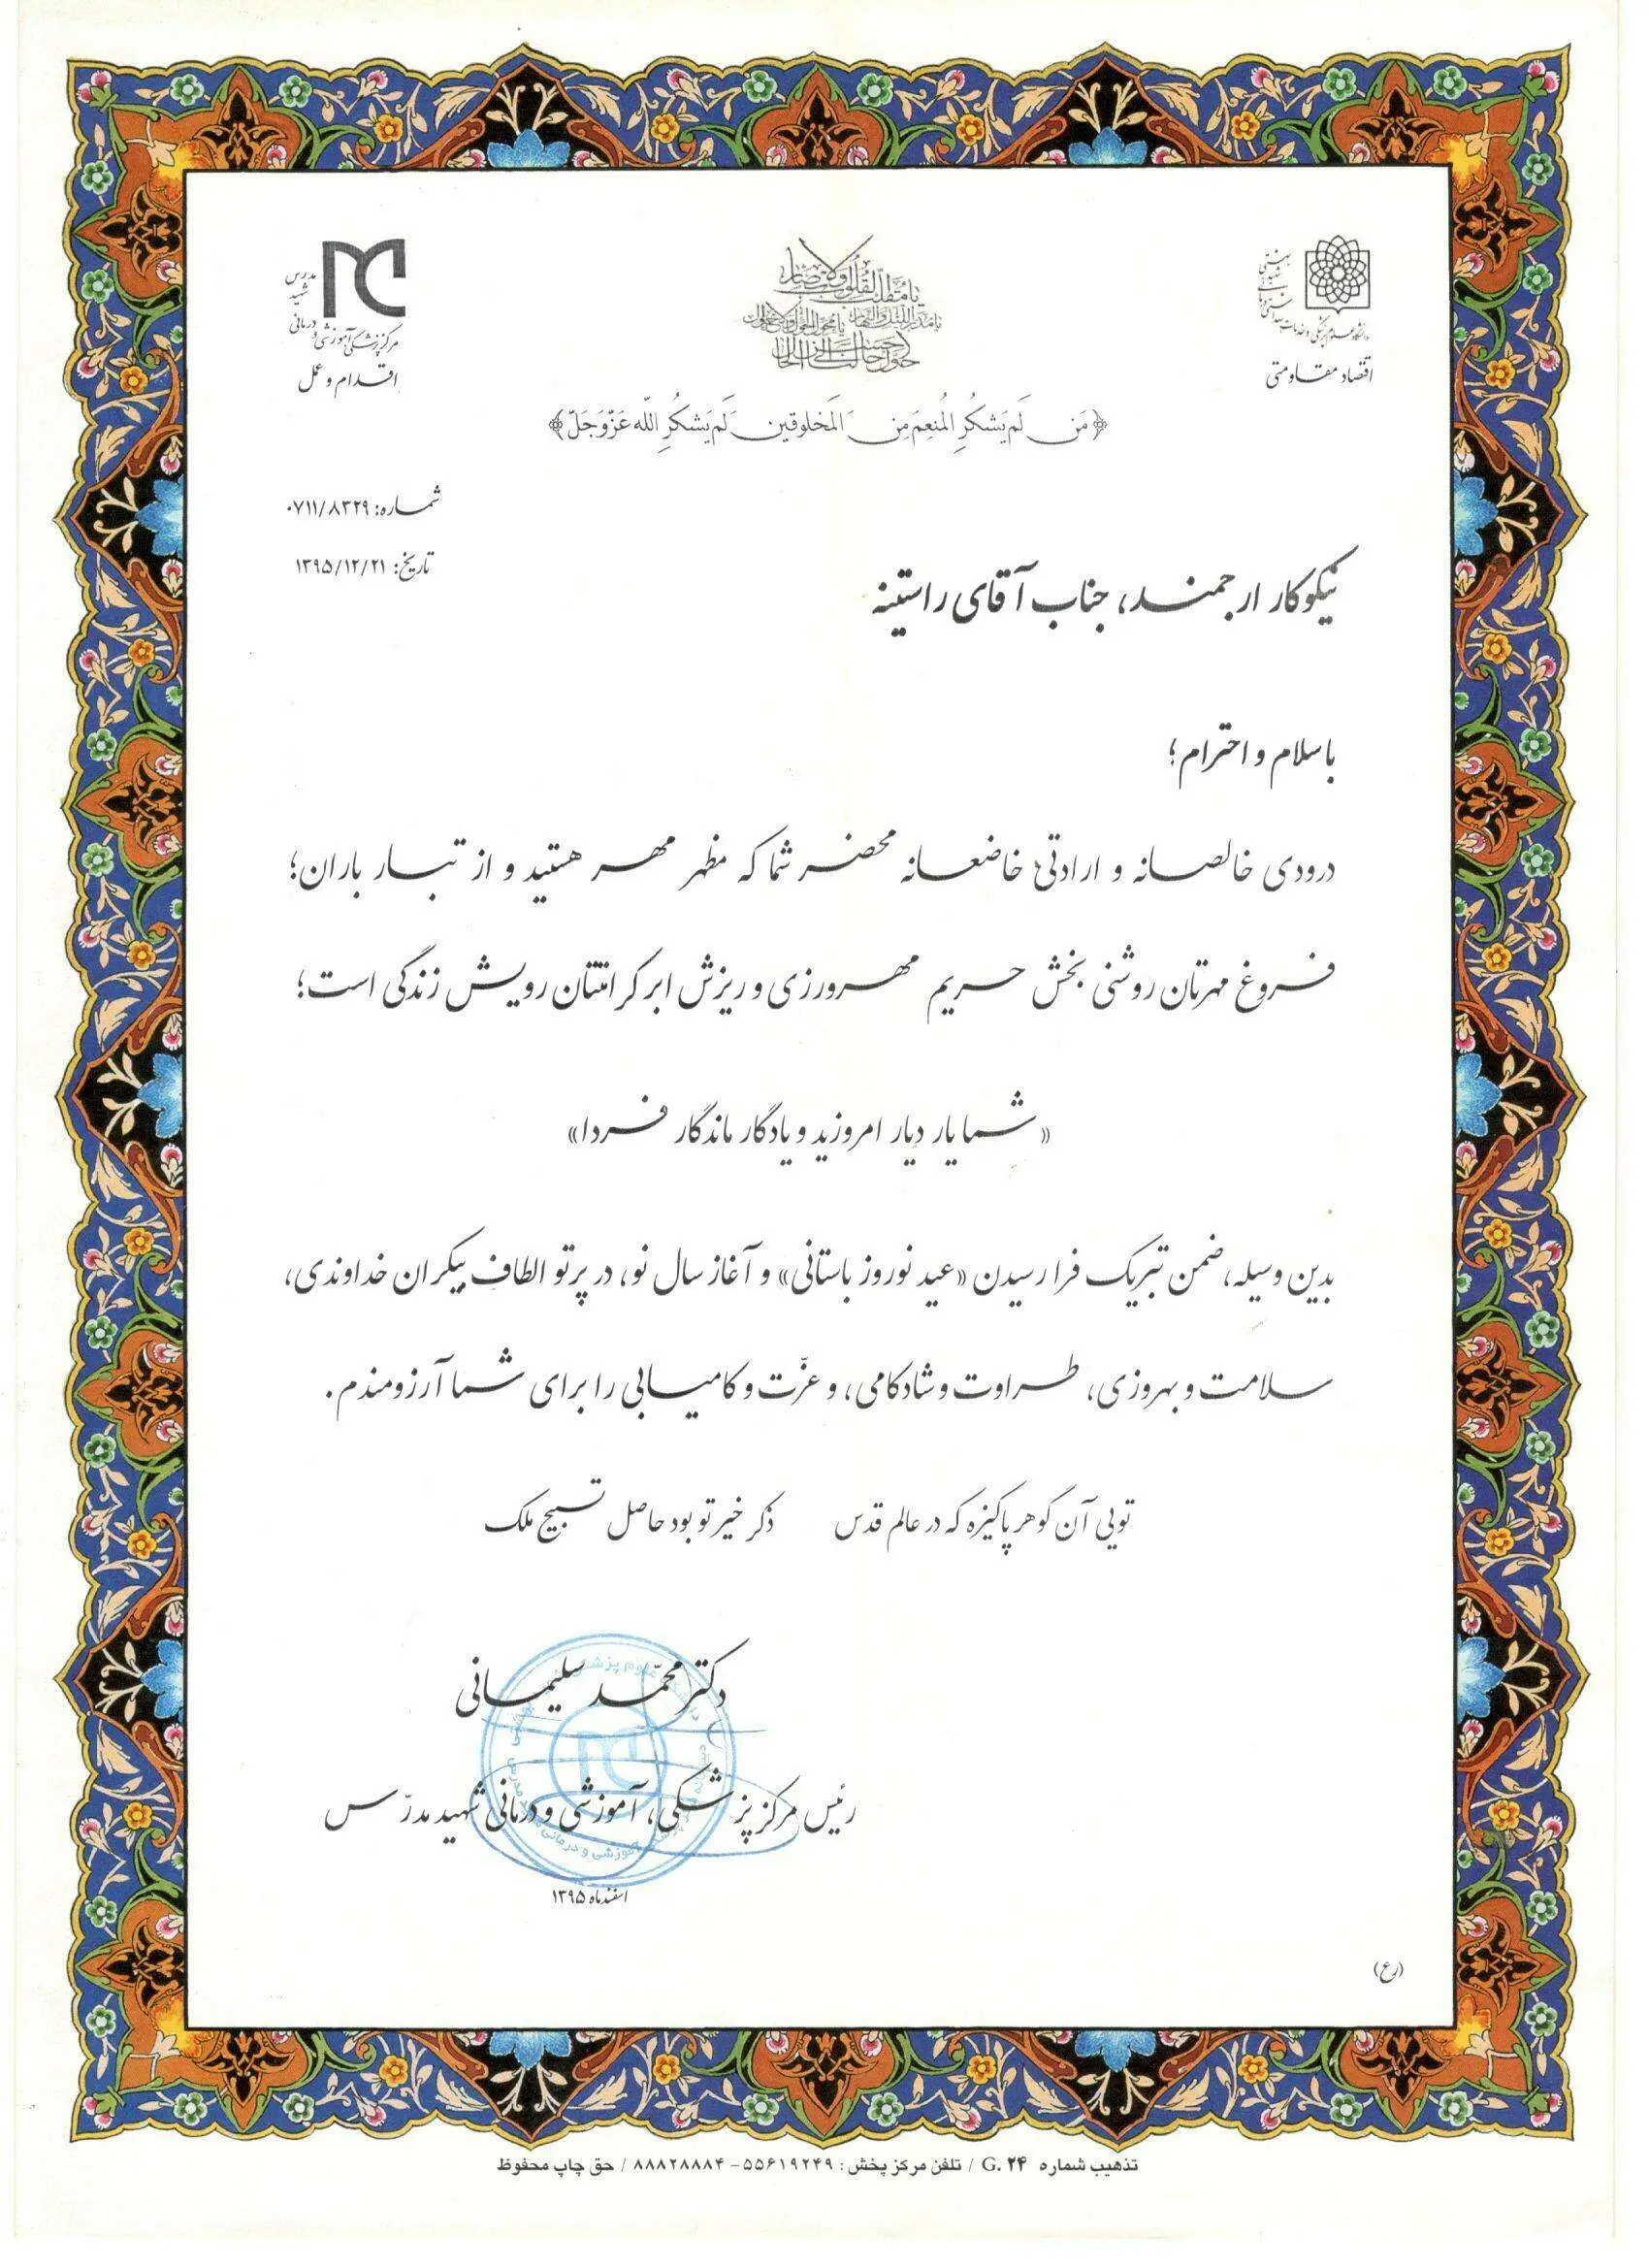 یا مقلب القلوب و الابصار
یا مدبر اللیل و النهار یا محول الحول و الاحوال
حول حالنا الی احسن الحال
دانشگاه علوم پزشکی و خدمات بهداشتی درمانی شهید بهشتی
اقتصاد مقاومتی
مرکز پزشکی، آموزشی و درمانی شهید مدرس
اقدام و عمل
﴿مَن لَم یَشکُرِ المُنعِمَ مِنَ المَخلوقینَ لَم یَشکُرِ اللّه عَزَّوَجَلّ﴾
شماره: ۰۷۱۱/۸۳۲۹
تاریخ: ۱۳۹۵/۱۲/۲۱
نیکوکار ارجمند، جناب آقای راستینه
با سلام و احترام؛
درودی خالصانه و ارادتی خاضعانه محضر شما که مظهر مهر هستید و از تبار باران؛
فروغ مهرتان روشنی بخش حریم مهرورزی و ریزش ابر کرامتتان رویش زندگی است؛
«شما یار دیار امروزید و یادگار ماندگار فردا»
بدین وسیله، ضمن تبریک فرا رسیدن «عید نوروز باستانی» و آغاز سال نو، در پرتو الطافِ بیکران خداوندی،
سلامت و بهروزی، طراوت و شادکامی، و عزّت و کامیابی را برای شما آرزومندم.
تویی آن گوهر پاکیزه که در عالم قدس ذکر خیر تو بود حاصل تسبیح ملک
دکتر محمّد سلیمانی
رئیس مرکز پزشکی، آموزشی و درمانی شهید مدرّس
اسفندماه ۱۳۹۵
(رع)
تذهیب شماره G. ۲۴ / تلفن مرکز پخش: ۵۵۶۱۹۲۴۹ - ۸۸۸۲۸۸۸۴ / حق چاپ محفوظ